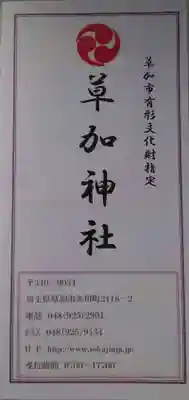 草加市有形文化財指定
草加神社
〒340-0034
埼玉県草加市氷川町2118-2
電話 048(925)2904
FAX 048(925)9134
HP http://www.sokajinja.jp
受付時間 9:00~17:00